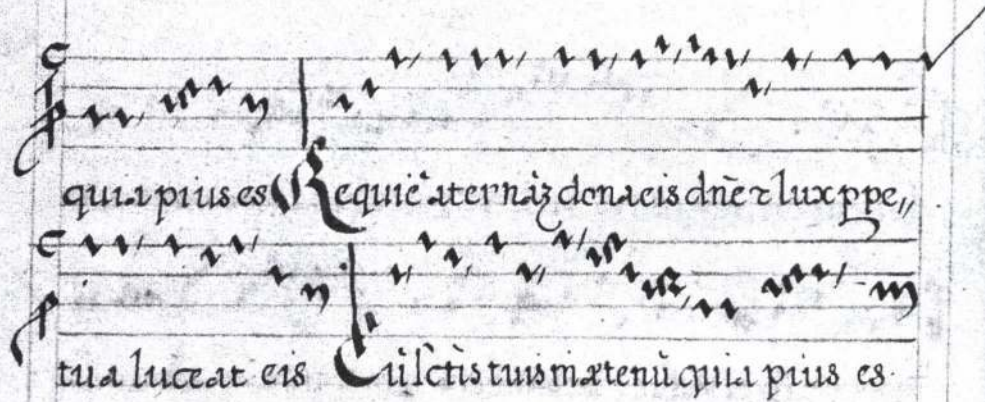 quia pius es Requiẽ æternãz dona eis dnẽ ⁊ lux ppe,,
tua luceat eis Cũ sctis tuis in æternũ quia pius es.